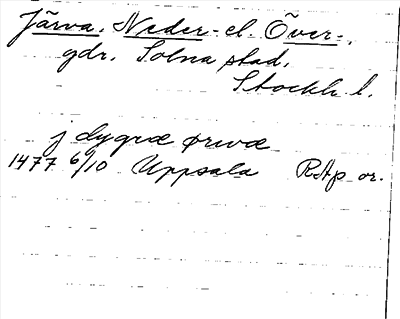 Järva, Neder- el. Över-,
gdr, Solna stad,
Stockh. l.
j dygræ ørwæ
1477 6/10 Uppsala RAp or.